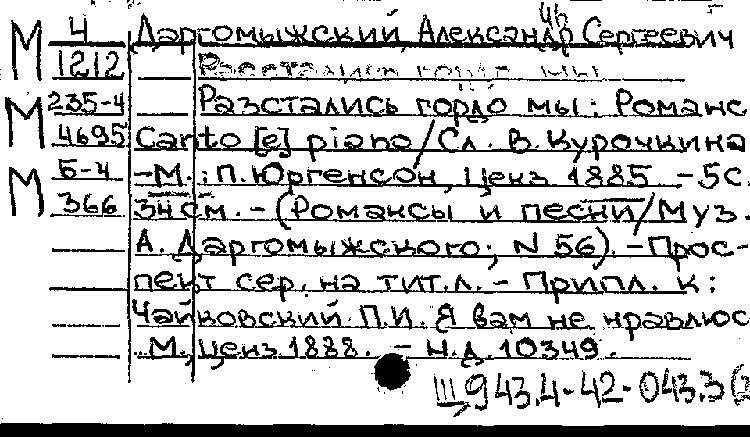 46
М Ч Даргомыжский, Александр Сергеевич
1212 Расстались гордо мы
М 235-4 Разстались гордо мы: Романс
4695 Canto [e] piano/Сл. В. Курочкина
М Б-4 -М.: П. Юргенсон, Ценз. 1885 -5с.
366 34см. - (Романсы и песни/Муз.
А. Даргомыжского; N 56). - Прос-
пект сер. на тит.л. - Припл. к:
Чайковский П.И. Я вам не нравлюс
М., ценз 1888. - Н.д. 10349.
III 943.4-42-043.3(2